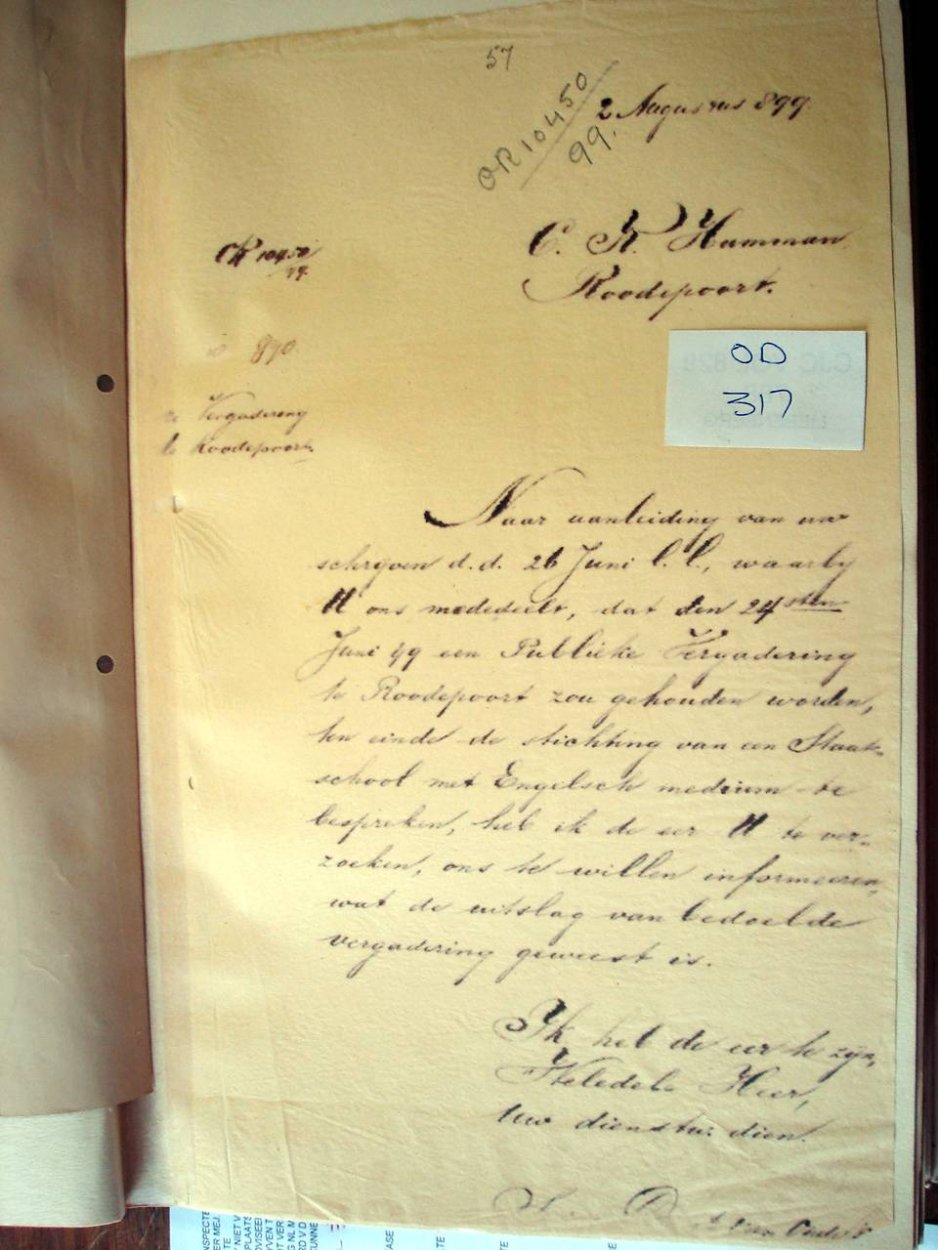 57
OR 10450
99.
2 Augustus 899.
OR 10450
99.
C. K. Hamman
Roodepoort.
890
OD
317
Vergadering
Roodepoort.
Naar aanleiding van uw
schrijven d.d. 26 Juni l.l., waarby
U ons mededeelt, dat den 24sten
Juni 99 een Publieke Vergadering
te Roodepoort zou gehouden worden,
ten einde de stichting van een Staats-
school met Engelsch medium te
bespreken, heb ik de eer U te ver-
zoeken, ons te willen informeeren,
wat de uitslag van bedoelde
vergadering geweest is.
Ik heb de eer te zijn,
WelEdele Heer,
Uw dienstw. dien.